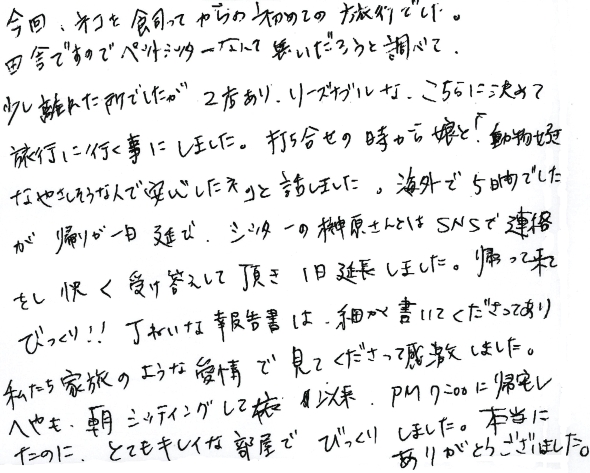 今回、ネコを飼ってからの初めての旅行でした。
田舎ですのでペットシッターなんて無いだろうと調べて、
少し離れた所でしたが 2店あり、リーズナブルな、こちらに決めて
旅行に行く事にしました。打ち合せの時から娘と「動物好き
なやさしそうな人で安心したネ」と話しました。海外で5日間でした
が 帰りが一日延び、シッターの榊原さんとはSNSで連絡
をし 快く 受け答えして頂き 1日延長しました。帰って来て
びっくり!! ていねいな報告書は、細かく書いてくださってあり
私たち家族のような愛情で見てくださって感激しました。
へやも、朝シッティングして 以来、PM7:00に帰宅し
たのに、とてもキレイな部屋で びっくりしました。本当に
ありがとうございました。